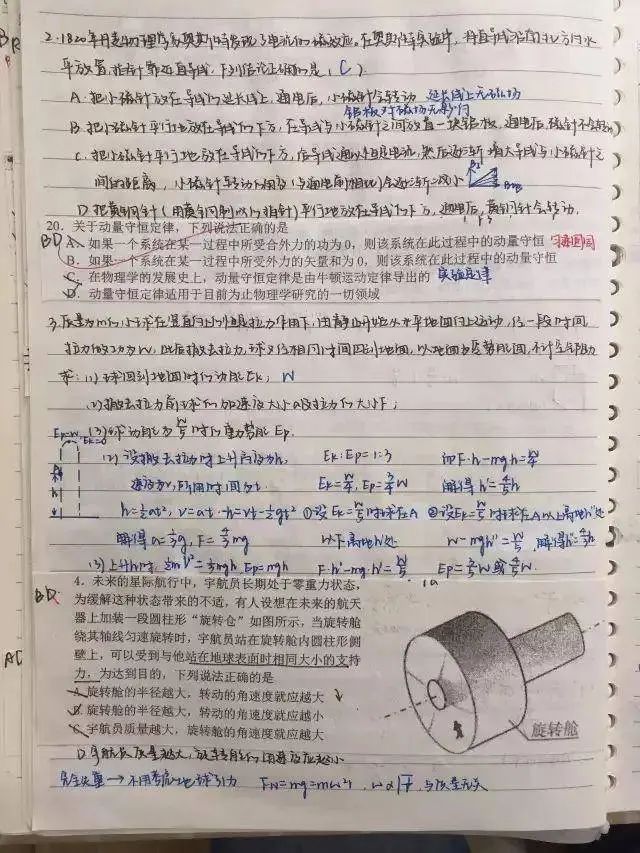 2. 1820年丹麦物理学家奥斯特发现了电流的磁效应。在奥斯特实验中，将直导线沿南北方向水
平放置，指针靠近直导线，下列结论正确的是（C）
A. 把小磁针放在导线的延长线上，通电后，小磁针会转动 延长线上无磁场
铝板对磁场无影响
B. 把小磁针平行地放在导线的下方，在导线与小磁针之间放置一块铝板，通电后，磁针不会转动
C. 把小磁针平行地放在导线的下方，给导线通以恒定电流，然后逐渐增大导线与小磁针之
间的距离，小磁针转动的角度（与通电前相比）会逐渐减小
D. 把黄铜针（用黄铜制成的指针）平行地放在导线的下方，通电后，黄铜针会转动.
20. 关于动量守恒定律，下列说法正确的是
BD A. 如果一个系统在某一过程中所受合外力的功为0，则该系统在此过程中的动量守恒
B. 如果一个系统在某一过程中所受外力的矢量和为0，则该系统在此过程中的动量守恒
C. 在物理学的发展史上，动量守恒定律是由牛顿运动定律导出的 实验定律
D. 动量守恒定律适用于目前为止物理学研究的一切领域
3. 质量为m的小球在竖直向上的恒定拉力作用下，由静止开始从水平地面向上运动，经一段时间
拉力做功为W，此后撤去拉力，球又经相同时间回到地面，以地面为零势能面，不计空气阻力
求：(1) 球回到地面时的动能Ek； W
(2) 撤去拉力前球的加速度大小a及拉力的大小F；
(3) 球动能为W/5时的重力势能Ep.
(2) 设撤去拉力时上升高度为h， Ek:Ep=1:3 即F·h-mgh=W/4
速度为v，所用时间为t. Ek=W/4, Ep=3/4W 解得h'=4/5h
h=1/2at², v=at -h=vt-1/2gt² ①设Ek=W/5时球在A ②设Ek=W/5时球在A以上离地h''处
解得a=1/3g, F=4/3mg 以下离地h'处 W-mgh''=W/5 解得h''=4/5h
(3) 上升h时 1/2mv²=1/3mgh, Ep=mgh F·h'-mg·h'=W/5 Ep=3/5W或4/5W.
4. 未来的星际航行中，宇航员长期处于零重力状态，
BD
为缓解这种状态带来的不适，有人设想在未来的航天
器上加装一段圆柱形“旋转仓”如图所示，当旋转舱
绕其轴线匀速旋转时，宇航员站在旋转舱内圆柱形侧
壁上，可以受到与他站在地球表面时相同大小的支持
力，为达到目的，下列说法正确的是
A. 旋转舱的半径越大，转动的角速度就应越大
B. 旋转舱的半径越大，转动的角速度就应越小
C. 宇航员质量越大，旋转舱的角速度就应越大
旋转舱
D. 宇航员质量越大，旋转舱的角速度应越小
完全失重→不用考虑地球引力 FN=mg=mω²r，与质量无关